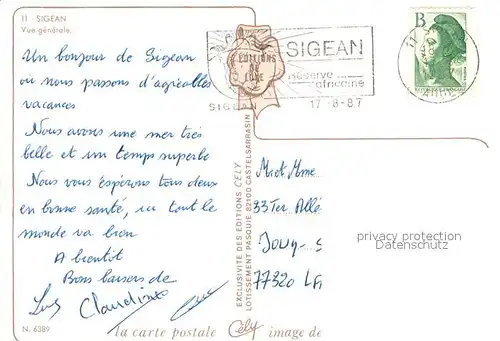 11 - SIGEAN
Vue générale.
Un bonjour de Sigean
où nous passons d'agréables
vacances
Nous avons une mer très
belle et un temps superbe
Nous vous espérons tous deux
en bonne santé, ici tout le
monde va bien
A bientôt
Bons baisers de
Claudine
N. 6389
EDITIONS
DE
LUXE
SIGEAN
SIGEAN
Réserve
africaine
17-8-87
B
11
AUDE
EXCLUSIVITE DES EDITIONS CELY
LOTISSEMENT PASQUIE 82100 CASTELSARRASIN
M et Mme
33 Ter Allé
Jouy - s
77320 LA
privacy protection
Datenschutz
la carte postale Cely image de